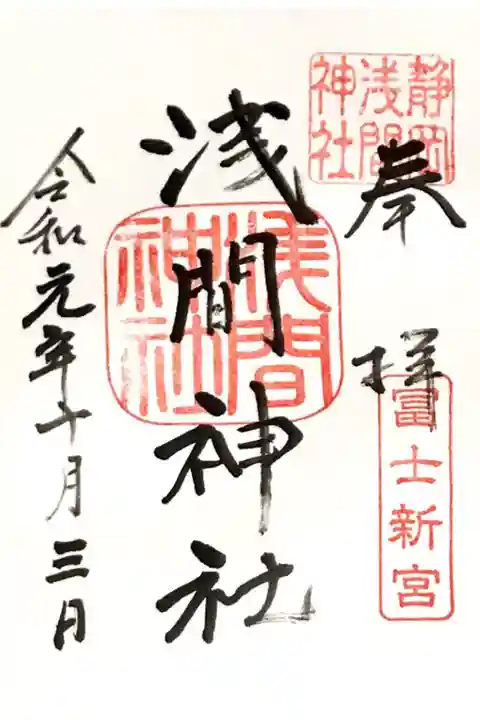 静岡
浅間
神社
奉拝
富士新宮
浅間神社
浅間
神社
令和元年十月三日